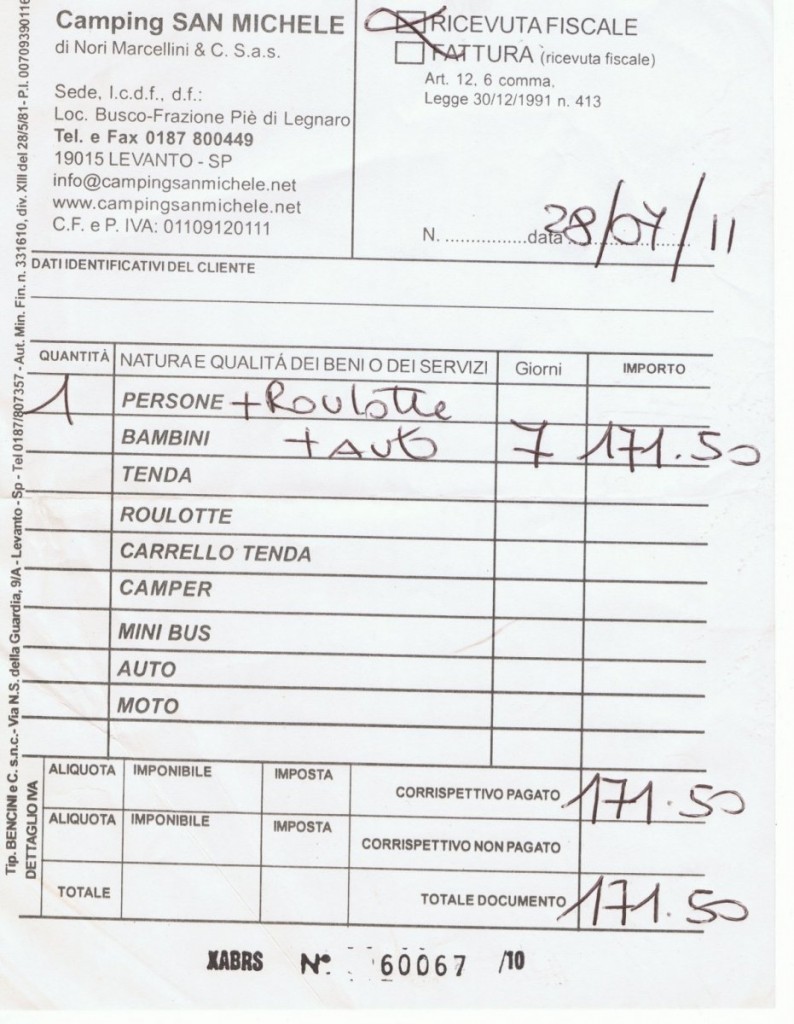 Camping SAN MICHELE
di Nori Marcellini & C. S.a.s.
Sede, l.c.d.f., d.f.:
Loc. Busco-Frazione Piè di Legnaro
Tel. e Fax 0187 800449
19015 LEVANTO - SP
info@campingsanmichele.net
www.campingsanmichele.net
C.F. e P. IVA: 01109120111
RICEVUTA FISCALE
FATTURA (ricevuta fiscale)
Art. 12, 6 comma,
Legge 30/12/1991 n. 413
N. ................data 28/07/11
DATI IDENTIFICATIVI DEL CLIENTE
QUANTITÁ NATURA E QUALITÁ DEI BENI O DEI SERVIZI Giorni IMPORTO
1 PERSONE + Roulotte
BAMBINI + Auto 7 171.50
TENDA
ROULOTTE
CARRELLO TENDA
CAMPER
MINI BUS
AUTO
MOTO
ALIQUOTA IMPONIBILE IMPOSTA CORRISPETTIVO PAGATO 171.50
ALIQUOTA IMPONIBILE IMPOSTA CORRISPETTIVO NON PAGATO
TOTALE TOTALE DOCUMENTO 171.50
DETTAGLIO IVA
XABRS N° 60067 /10
Tip. BENCINI e C. s.n.c.- Via N.S. della Guardia, 9/A - Levanto - Sp - Tel 0187/807357 - Aut. Min. Fin. n. 331610, div. XIII del 28/5/81- P.I. 00709390116